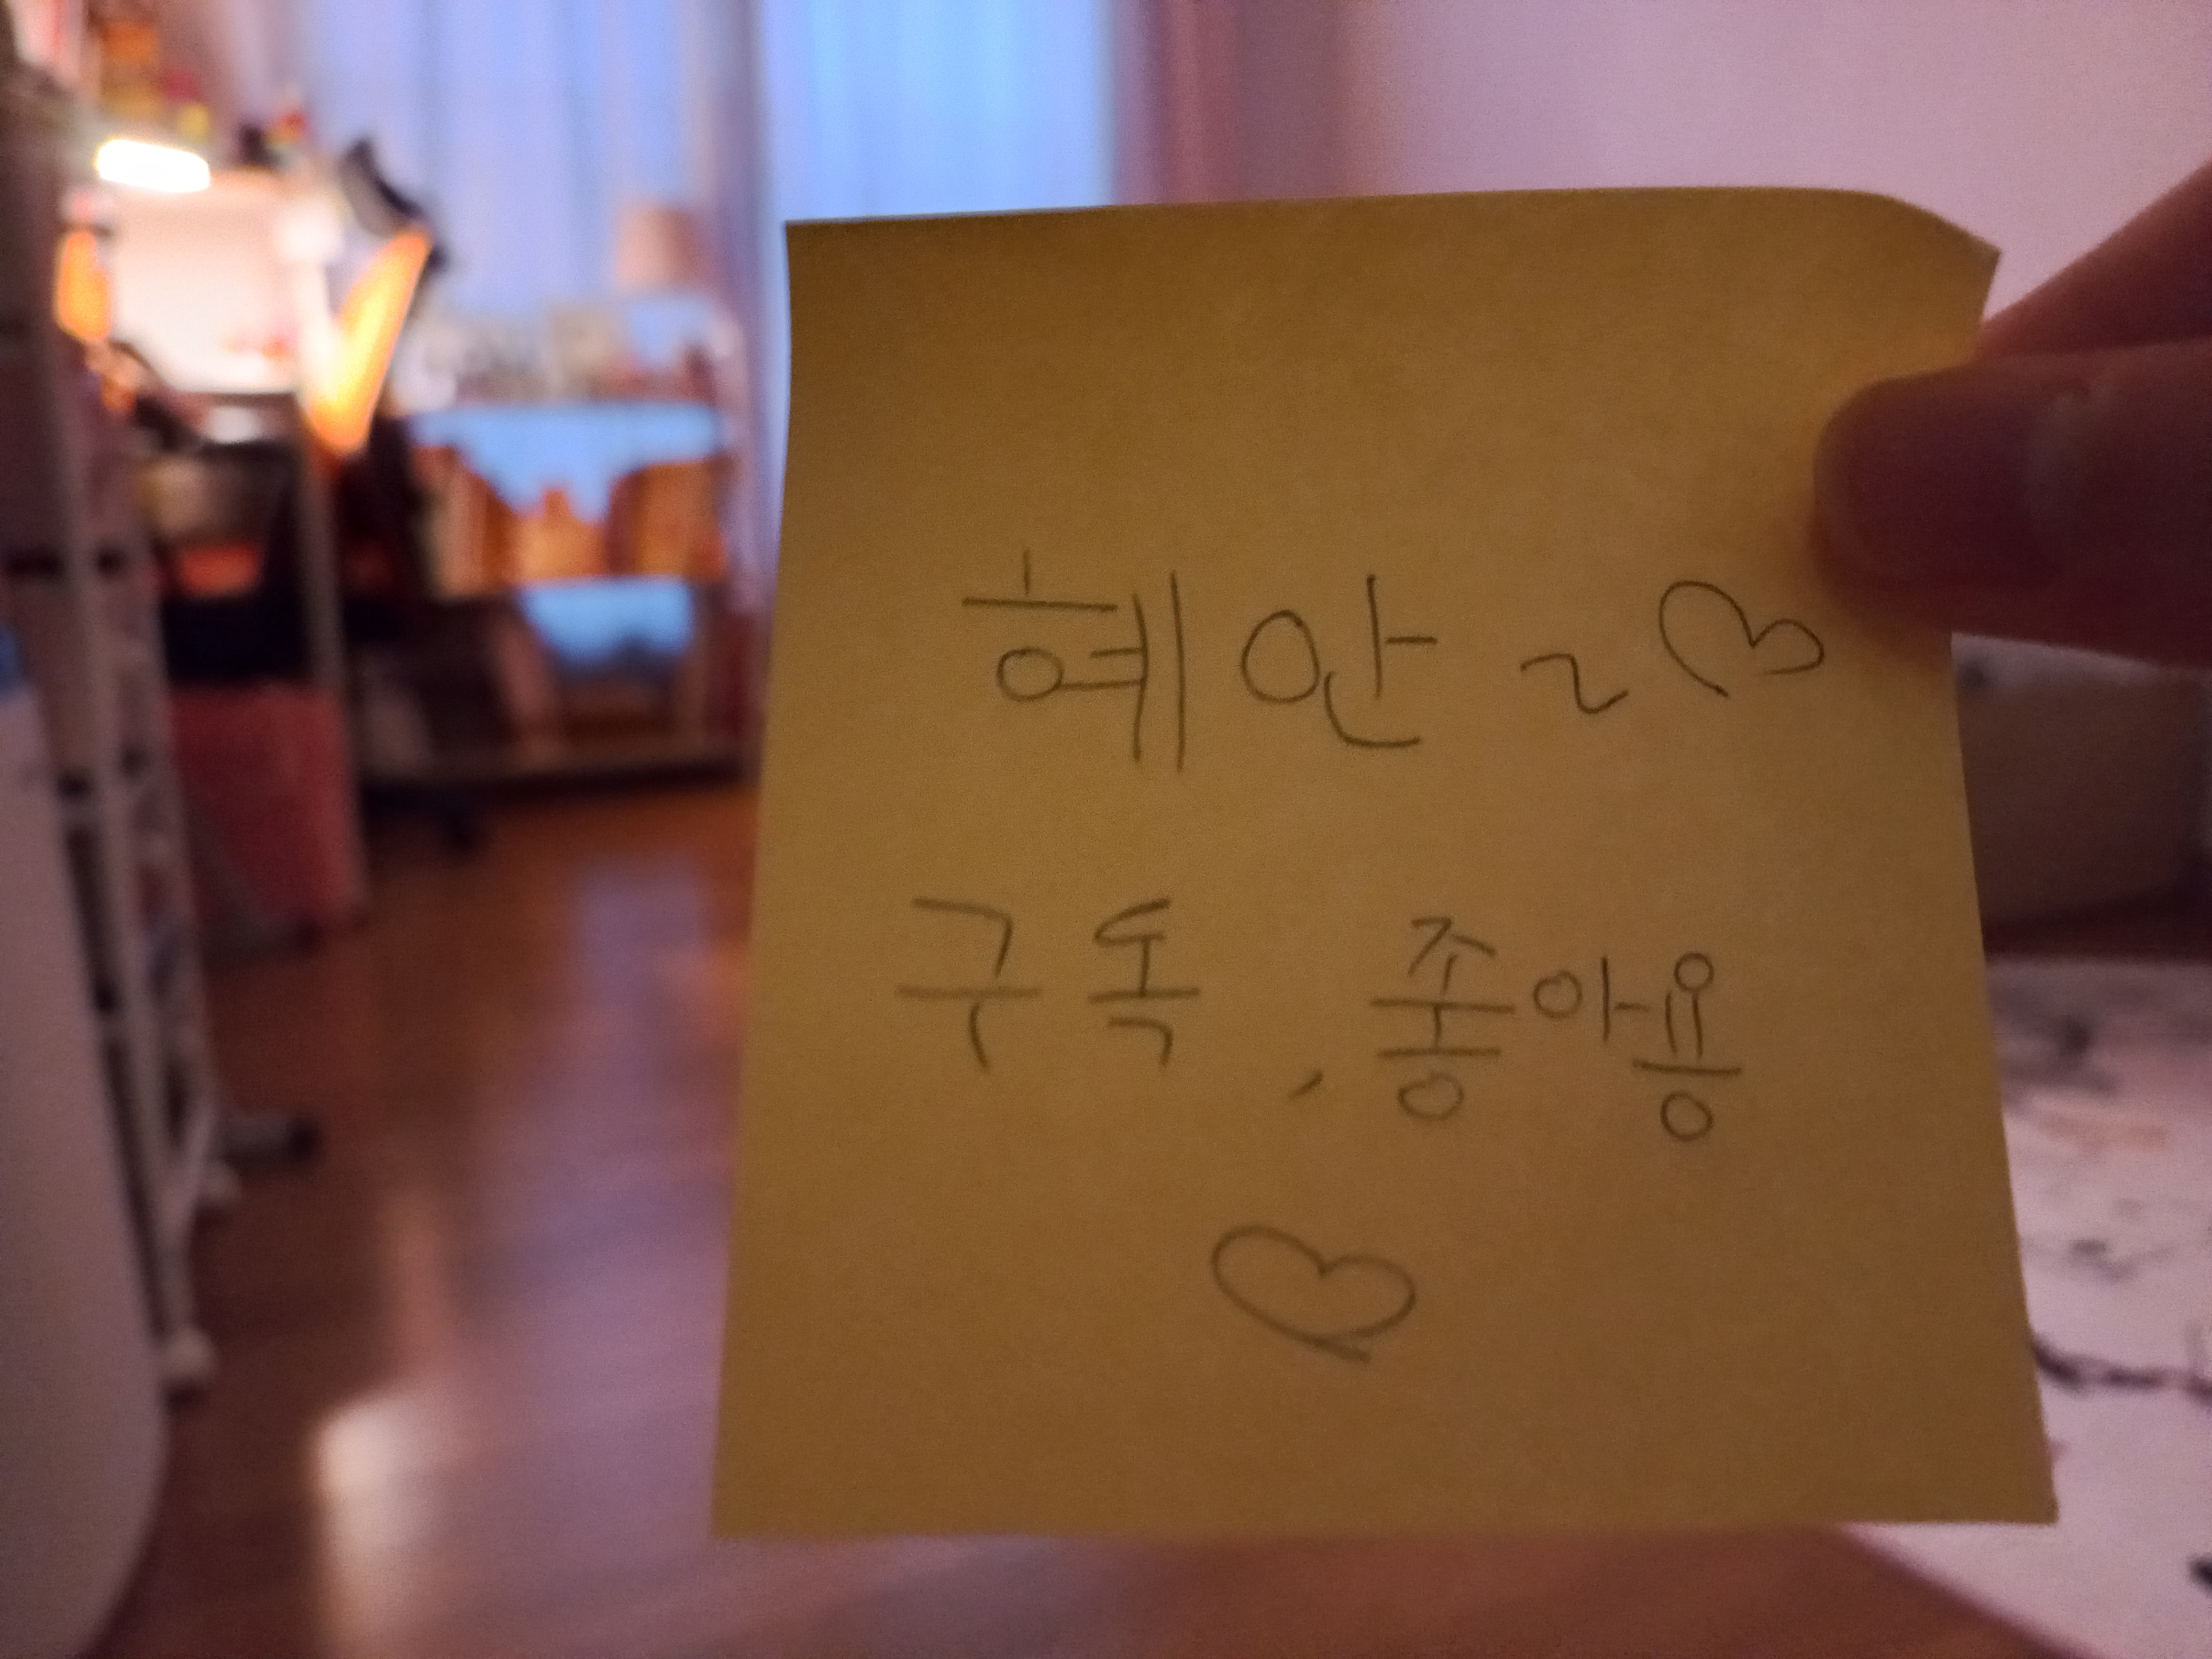 혜안~♡
구독, 좋아용
♡